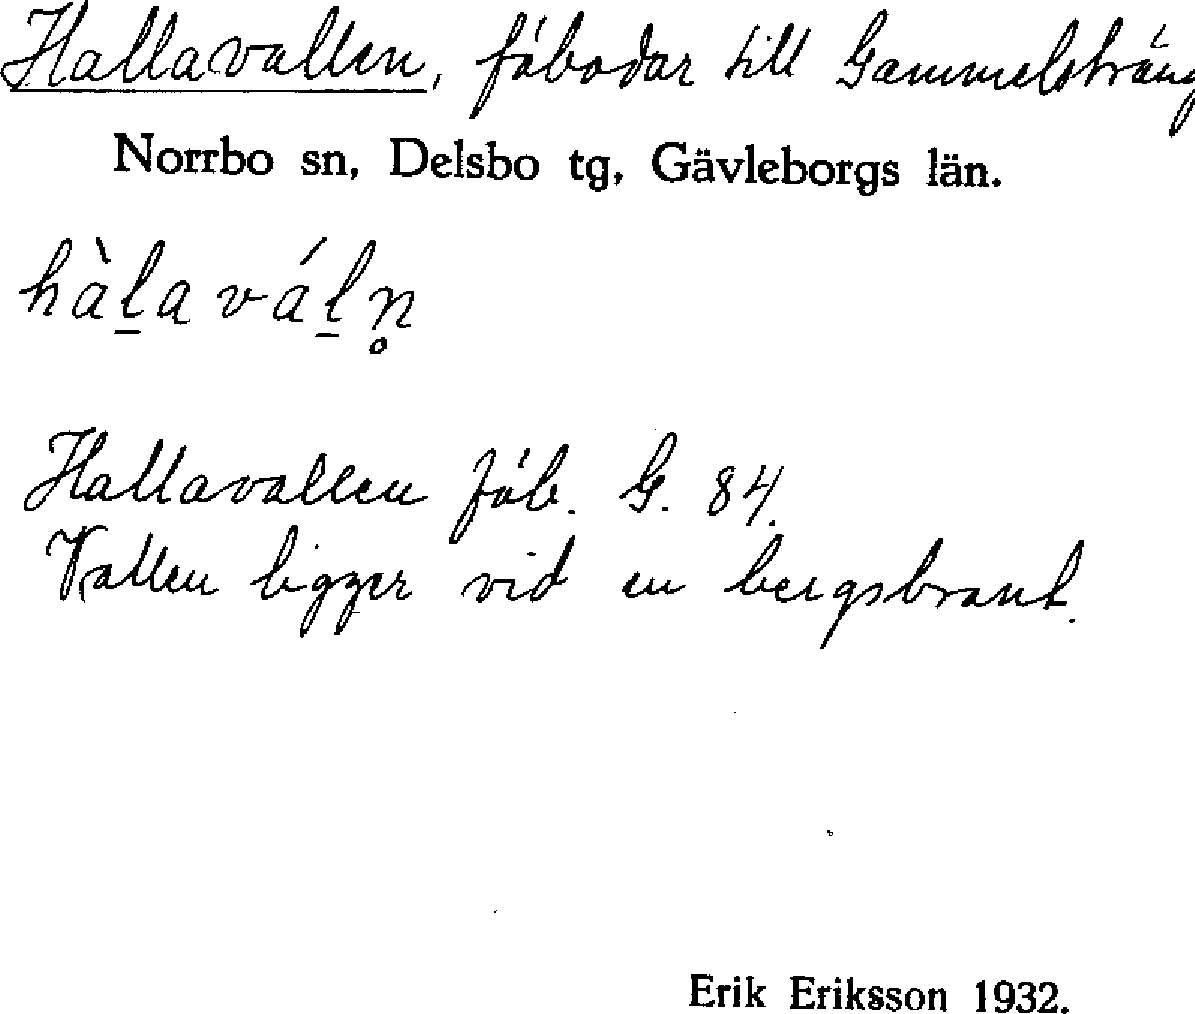 Hallavallen, fäbodar till Gammelsträng
Norrbo sn, Delsbo tg, Gävleborgs län.
hàl̠a vál̠n̥
Hallavallen fäb. G. 84.
Vallen ligger vid en bergsbrant.
Erik Eriksson 1932.